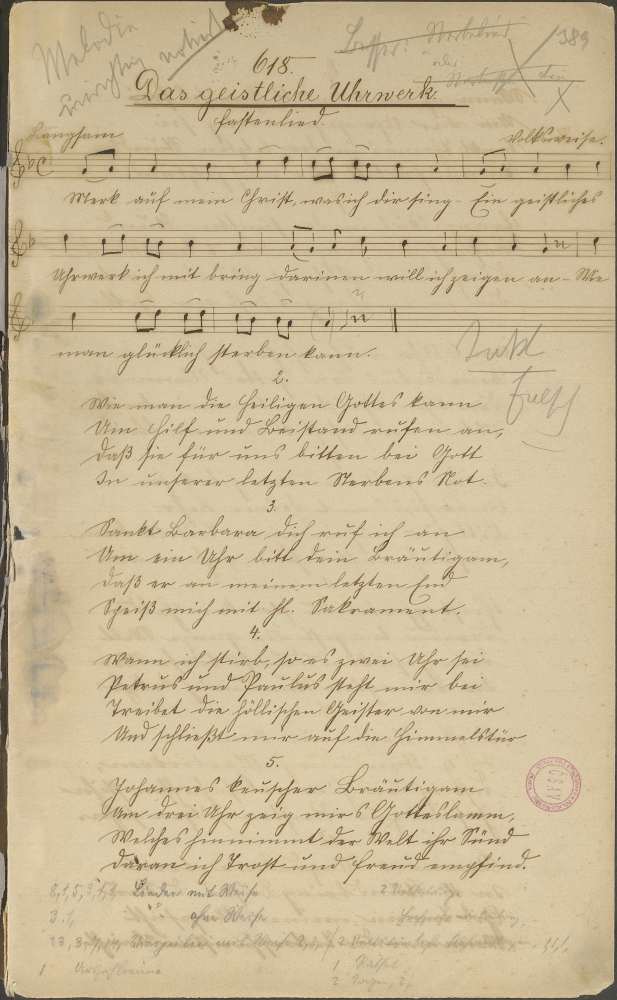 Melodie
unrichtig notiert
Besser: Sterbelied
oder
389
618.
Das geistliche Uhrwerk.
Fastenlied.
Langsam
Volksweise.
Merk auf mein Christ, was ich dir sing - Ein geistliches
Uhrwerk ich mit bring - darinen will ich zeigen an - Wie
man glücklich sterben kann.
Takt
falsch
2.
Wie man die heiligen Gottes kann
Um Hilf und Beistand rufen an,
Daß sie für uns bitten bei Gott
In unserer letzten Sterbens Not.
3.
Sankt Barbara dich ruf ich an
Um ein Uhr bitt dein Bräutigam,
Daß er an meinem letzten End
Speiß mich mit hl. Sakrament.
4.
Wann ich stirb, so es zwei Uhr sei
Petrus und Paulus steht mir bei
Treibet die höllischen Geister von mir
Und schließt mir auf die Himmelstür
5.
Johannes keuscher Bräutigam
Um drei Uhr zeig mirs Gotteslamm,
Welches hinnimmt der Welt ihr Sünd
Daran ich Trost und Freud empfind.
Lieder mit Weise
ohne Weise